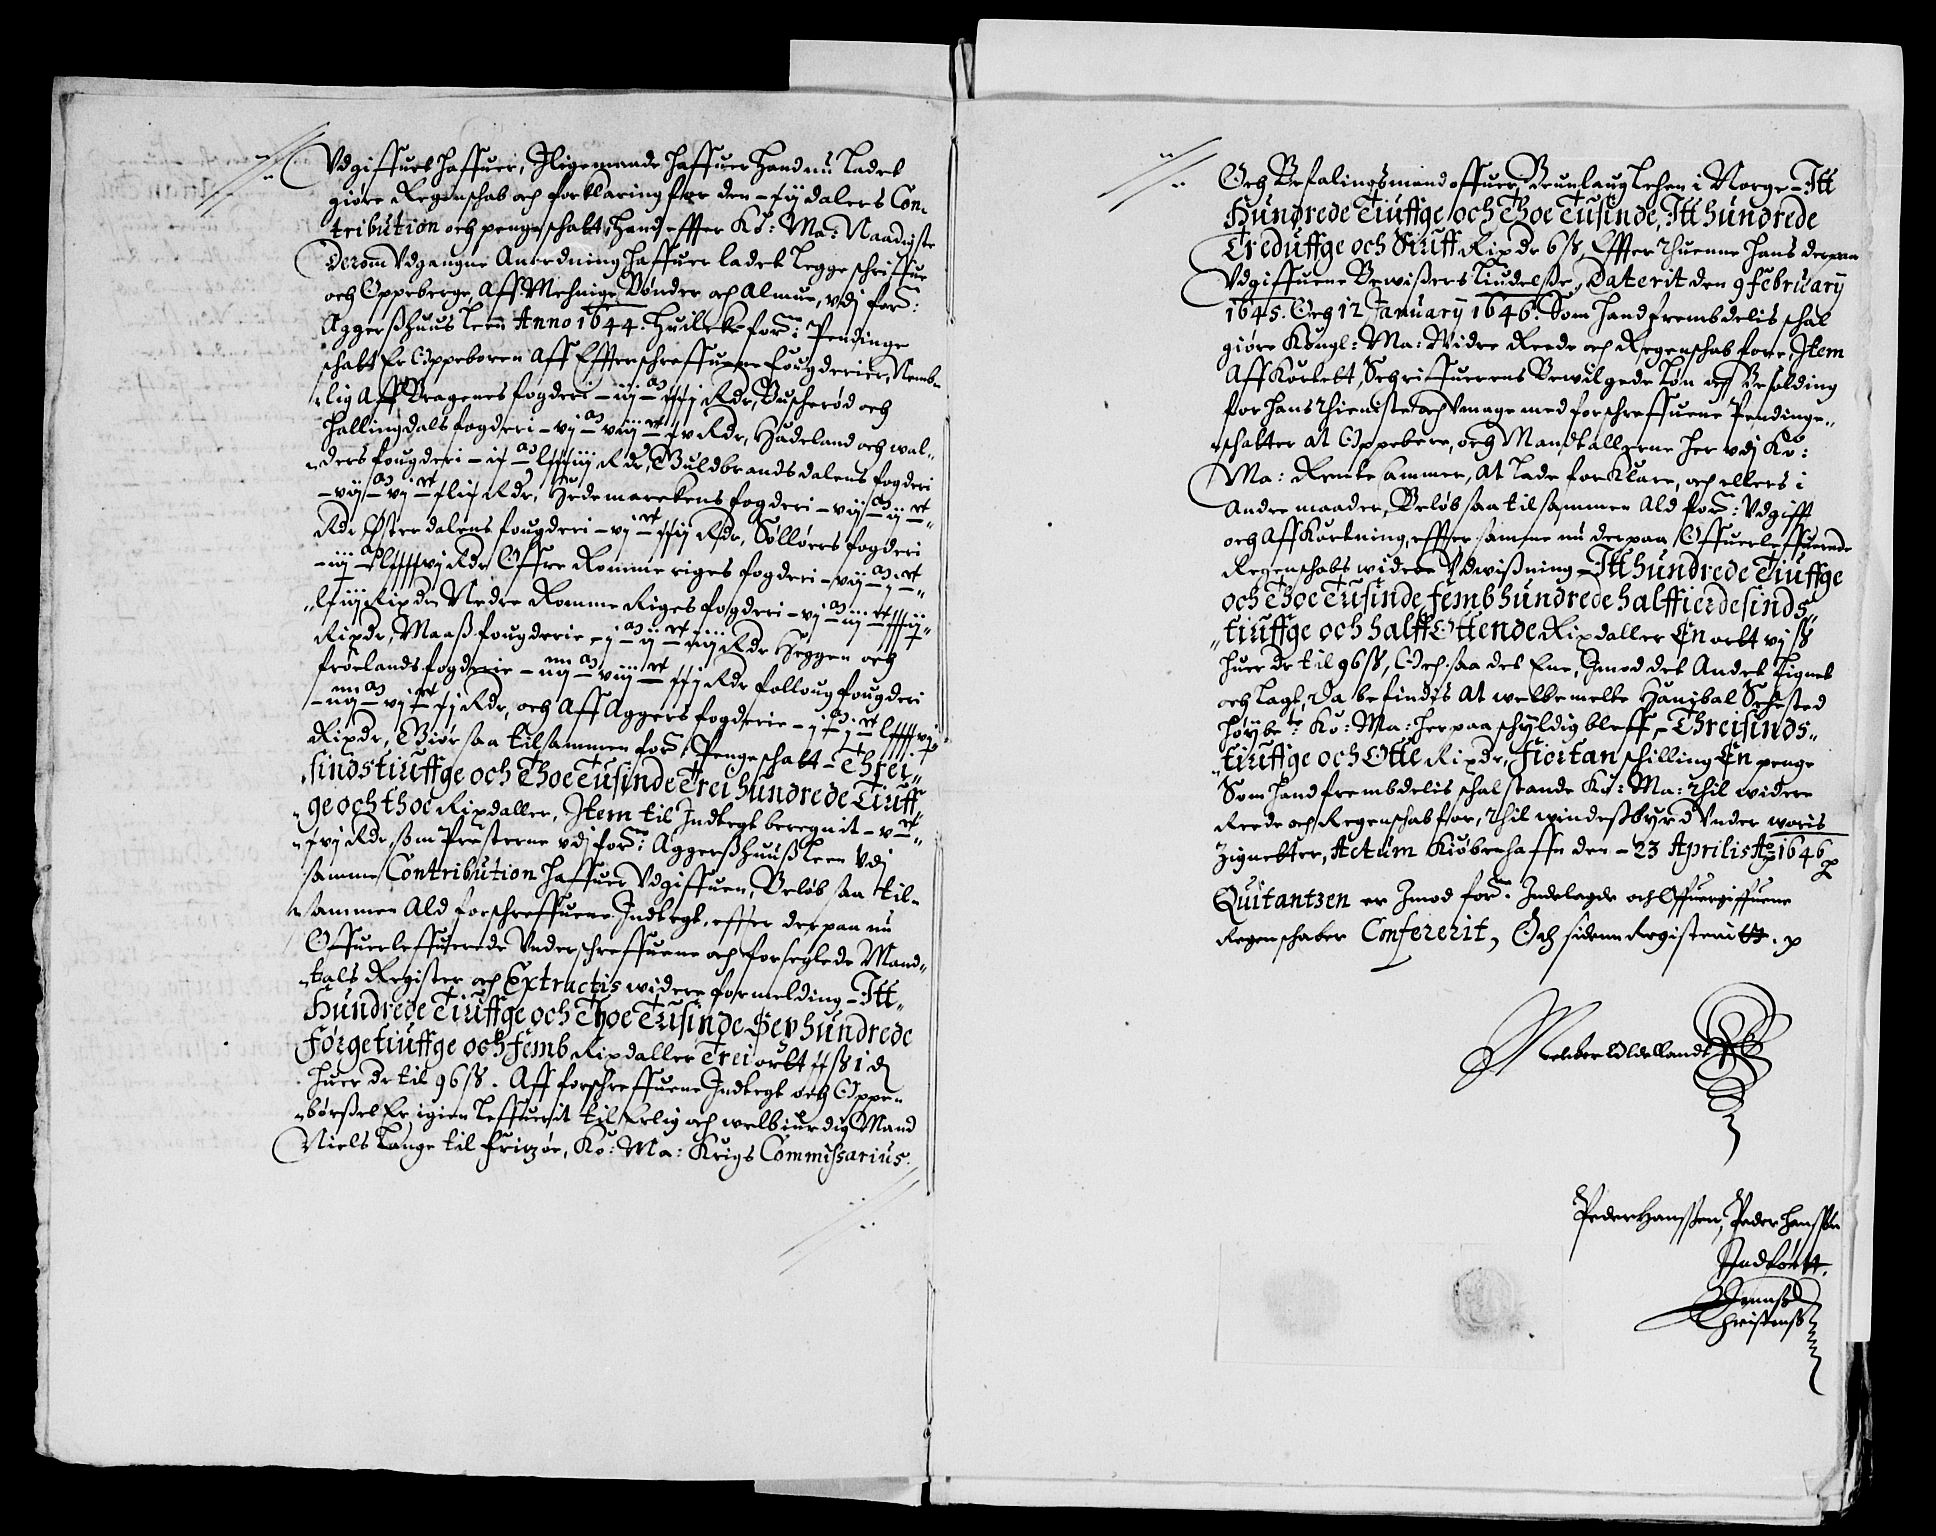 Vdgiffuet haffuer, Iligemaade haffuer Hand nu Ladet
giøre Regenschab och forklaring for den - daalers Con-
tribution och pengeschatt, Hand effter Ko: Ma: Naadigste
Derom Vdgangne Anordning haffuer ladet Legge schriffue
och Oppeberge, Aff Mehnige Bønder och Almue, vdj for:
Aggershuus Leen Anno 1644. Huilcke for: Pendinge
schatt Er Oppeboren Aff Effterschreffuene fougderier, Nemb-
lig Aff Bragenes fogderi - Rdr, Buscherød och
Hallingdals fogderi - Rdr, Hadeland och wal-
ders fougderi - Rdr, Guldbrandsdalens fogderi
- Rdr, Hedemarckens fogderi -
Rdr Østerdalens fougderi - Rdr, Solløers fogderi
- Rdr Offre Rommeriges fogderi -
Rixdr, Nedre Romme Riges fogderi -
Rixdr, Maaß fougderie - Rdr Heggen och
frølands fogderie - Rdr Folloug fougderi
- Rdr, och Aff Aggers fogderie -
Rixdr, Giør saa tilsammen for: Pengeschatt - Threi-
sindstiuffge och Thoe Tusinde Trei hundrede Tiuff-
ge och thoe Rixdaller, Item til Indtegt beregnit -
Rdr, som Presterne vdj for: Aggershuuß Leen Vdj
samme Contribution haffuer Vdgiffuen, Beløb saa til-
sammen Ald forschreffuene Indtegt, effter derpaa nu
Offuerleffuerede Vnderschreffuene och forseglede Mand-
tals Register och Extractis widere formelding - Itt-
Hundrede Tiuffge och Thoe Tusinde Sex hundrede
Førgetiuffge och femb Rixdaller Trei ortt ß 1 d
huer dr til 96 ß. Aff forschreffuene Indtegt och Oppe-
børsel Er igien Leffuerit til Erlig och welbiurdig Mand
Niels Lange til Fritzøe, Ko: Ma: Krigs Commissarius.
Och Befalingsmand offuer Brunlaug Lehen i Norge - Itt
Hundrede Tiuffge och Thoe Tusinde, Itt hundrede
Treduffge och Siuff Rixdr 6 ß, Effter thuenne hans derpaa
Vdgiffuene Bewißers liudelße, Daterit den 9 february
1645. Och 12 January 1646. Som Hand frembdelis schal
giøre Kongl: Ma: Widre Reede och Regenschab fore, Item
Aff Kortet, Schriffuerens Bewilgede Løn och Besolding
for hans thieniste och Vmage med forschreffuene Pendinge-
schatter at Oppebere, och Mandtallerne her vdj Ko:
Ma: Rentekammer, At lade forklare, och ellers i
Andre maader, Beløb saa tilsammen Ald for: Vdgifft
och Affkortning, effter samme nu derpaa Offuerleffuerede
Regenschabs widere Vdwißning - Itt hundrede Tiuffge
och Thoe Tusinde, femb hundrede halffierdesinds-
tiuffge och halff Ottende Rixdaller En ortt vj ß
huer dr til 96 ß, Och saa det Ene, Imod det Andet Lignet
och Lagt, Da befindis At welbemelte Hanibal Sehested
høybe: Ko: Ma: herpaa schyldig bleff - Threisinds-
tiuffge och Otte Rixdr, Fiortan schilling En penge
Som Hand frembdelis schal stande Ko: Ma: thil widere
Reede och Regenschab for, Thil windesbyrd Vnder woris
Zignetter, Actum Kiøbenhaffn den - 23 Aprilis Ao 1646
Quitantzen er Imod for: Indelagde och Offuergiffuene
Regenschaber Confererit, Och siden Registeritt.
Melcher Oldellandt
Peder Hanssen, Peder Hanssen
Indført.
Christens